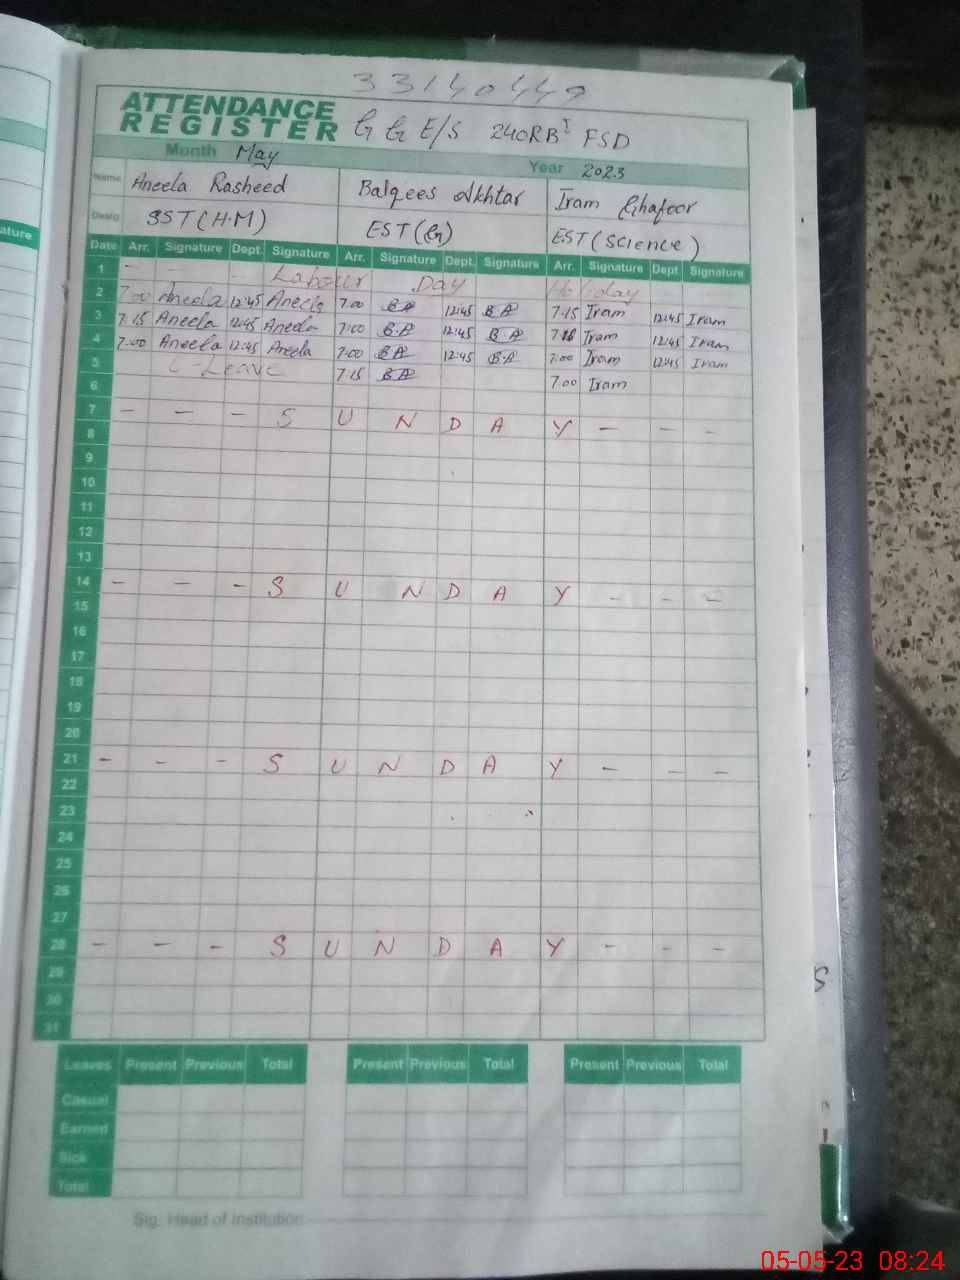 33140449
ATTENDANCE
REGISTER G G E/S 240RB I FSD
Month May Year 2023
Name Aneela Rasheed Balqees Akhtar Iram Ghafoor
Desig SST (H.M) EST (Gn) EST (Science)
Date Arr. Signature Dept. Signature Arr. Signature Dept. Signature Arr. Signature Dept. Signature
1 - - - Labour Day Holiday
2 7.00 Aneela 12:45 Aneela 7.00 B.A 12:45 B.A 7.15 Iram 12:45 Iram
3 7.15 Aneela 12:45 Aneela 7:00 B.A 12:45 B.A Iram 12:45 Iram
4 7.00 Aneela 12:45 Aneela 7.00 B.A 12:45 B.A 7:00 Iram 12:45 Iram
5 C-Leave 7.15 B.A 7.00 Iram
6
7 - - - S U N D A Y - - -
8
9
10
11
12
13
14 - - - S U N D A Y - - -
15
16
17
18
19
20
21 - - - S U N D A Y - - -
22
23
24
25
26
27
28 - - - S U N D A Y - - -
29
30
31
Leaves Present Previous Total Present Previous Total Present Previous Total
Casual
Earned
Sick
Total
Sig. Head of Institution
05-05-23 08:24